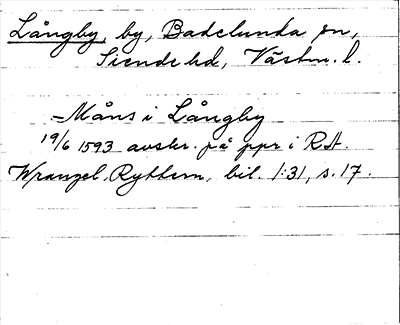 Långby, by, Badelunda sn,
Siende hd, Västm. l.
Måns i Långby
19/6 1593 avskr. på ppr i RA.
Wrangel, Ryttern, bil. 1:31, s. 17.